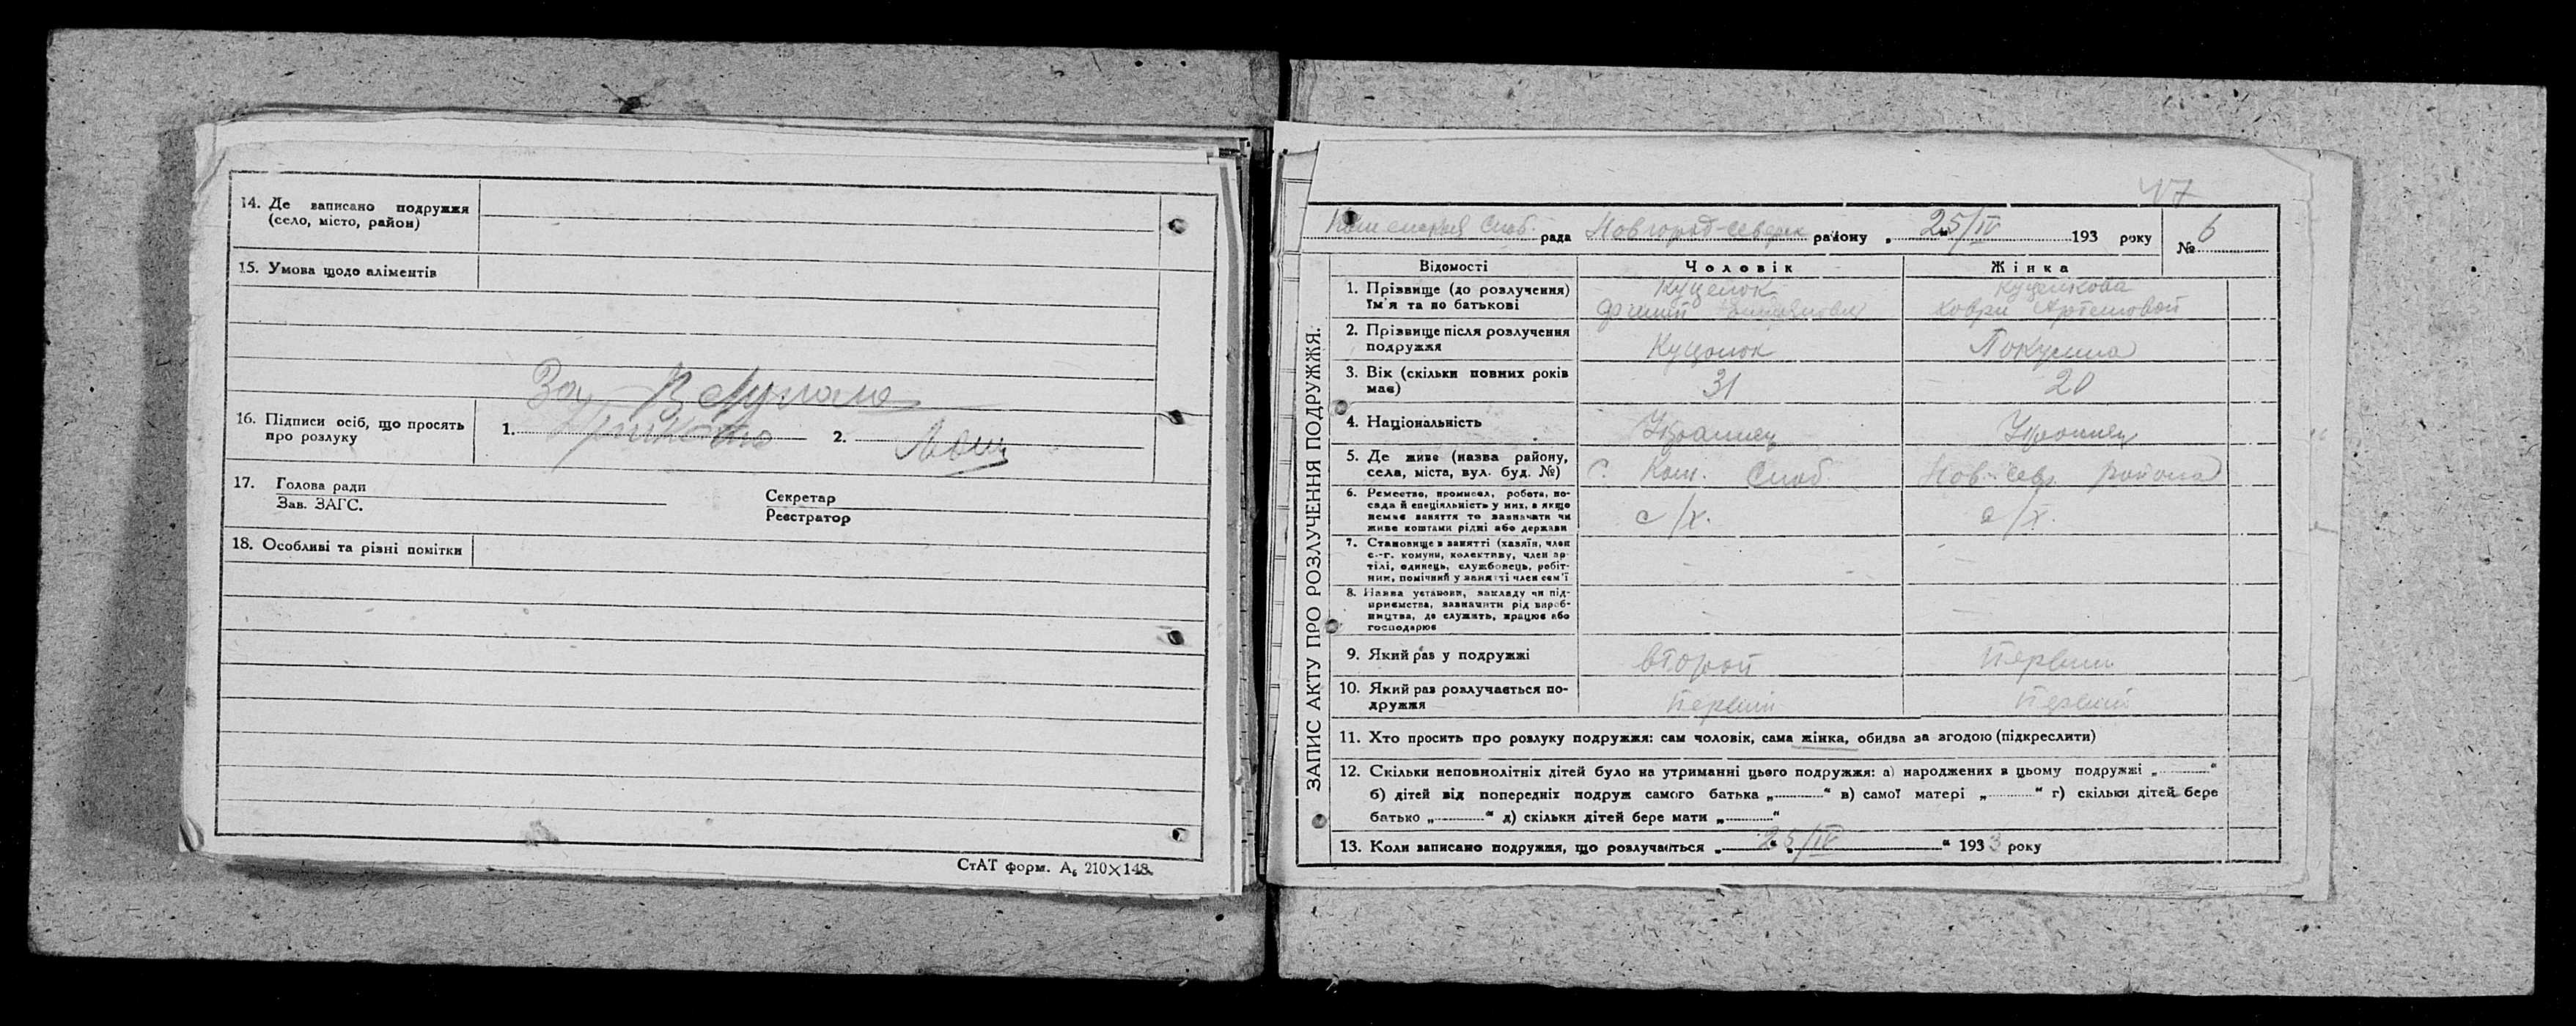 14. Де записано подружжя
(село, місто, район)
15. Умова щодо аліментів
За
16. Підписи осіб, що просять
про розлуку
1.
2.
17. Голова ради
Зав. ЗАГС.
Секретар
Реєстратор
18. Особливі та різні помітки
СтАТ форм. А₆ 210×148.
47
Слоб. рада Новгород-Северск району „ 25/IV 193 року
№ 6
ЗАПИС АКТУ ПРО РОЗЛУЧЕННЯ ПОДРУЖЖЯ.
Відомості Чоловік Жінка
1. Прізвище (до розлучення) Куценок Куценкова
Ім'я та по батькові Ховри Артемовой
2. Прізвище після розлучення
подружжя Куценок
3. Вік (скільки повних років
має) 31 20
4. Національність Украинец Украинец
5. Де живе (назва району,
села, міста, вул. буд. №) с. Кам. Слоб. Нов-Сев. района
6. Ремество, промисел, робота, по-
сада й спеціяльність у них, а якщо
немає заняття то зазначати чи
живе коштами рідні або держави с/х. с/х.
7. Становище в занятті (хазяїн, член
с.-г. комуни, колективу, член ар-
тілі, одинець, службовець, робіт-
ник, помічний у занятті член сем'ї
8. Назва установи, закладу чи під-
приємства, зазначити рід вироб-
ництва, де служить, працює або
господарює
9. Який раз у подружжі второй первый
10. Який раз розлучається по-
дружжя первый первый
11. Хто просить про розлуку подружжя: сам чоловік, сама жінка, обидва за згодою (підкреслити)
12. Скільки неповнолітніх дітей було на утриманні цього подружжя: а) народжених в цьому подружжі „ “
б) дітей від попередніх подруж самого батька „ “ в) самої матері „ “ г) скільки дітей бере
батько „ “ д) скільки дітей бере мати „ “
13. Коли записано подружжя, що розлучається „ 25/IV “ 1933 року